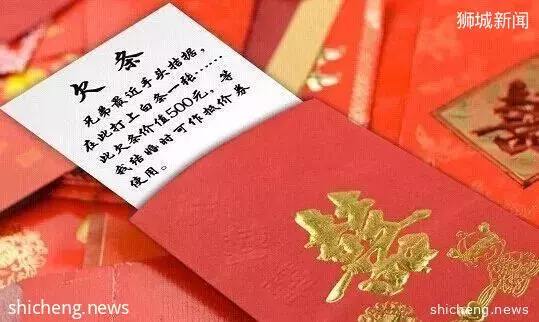 狮城新闻
欠条
兄弟最近手头拮据，
在此打上白条一张……
此欠条价值500元，等
我结婚时可作抵价券
使用。
囍
囍
shicheng.news
shicheng.news